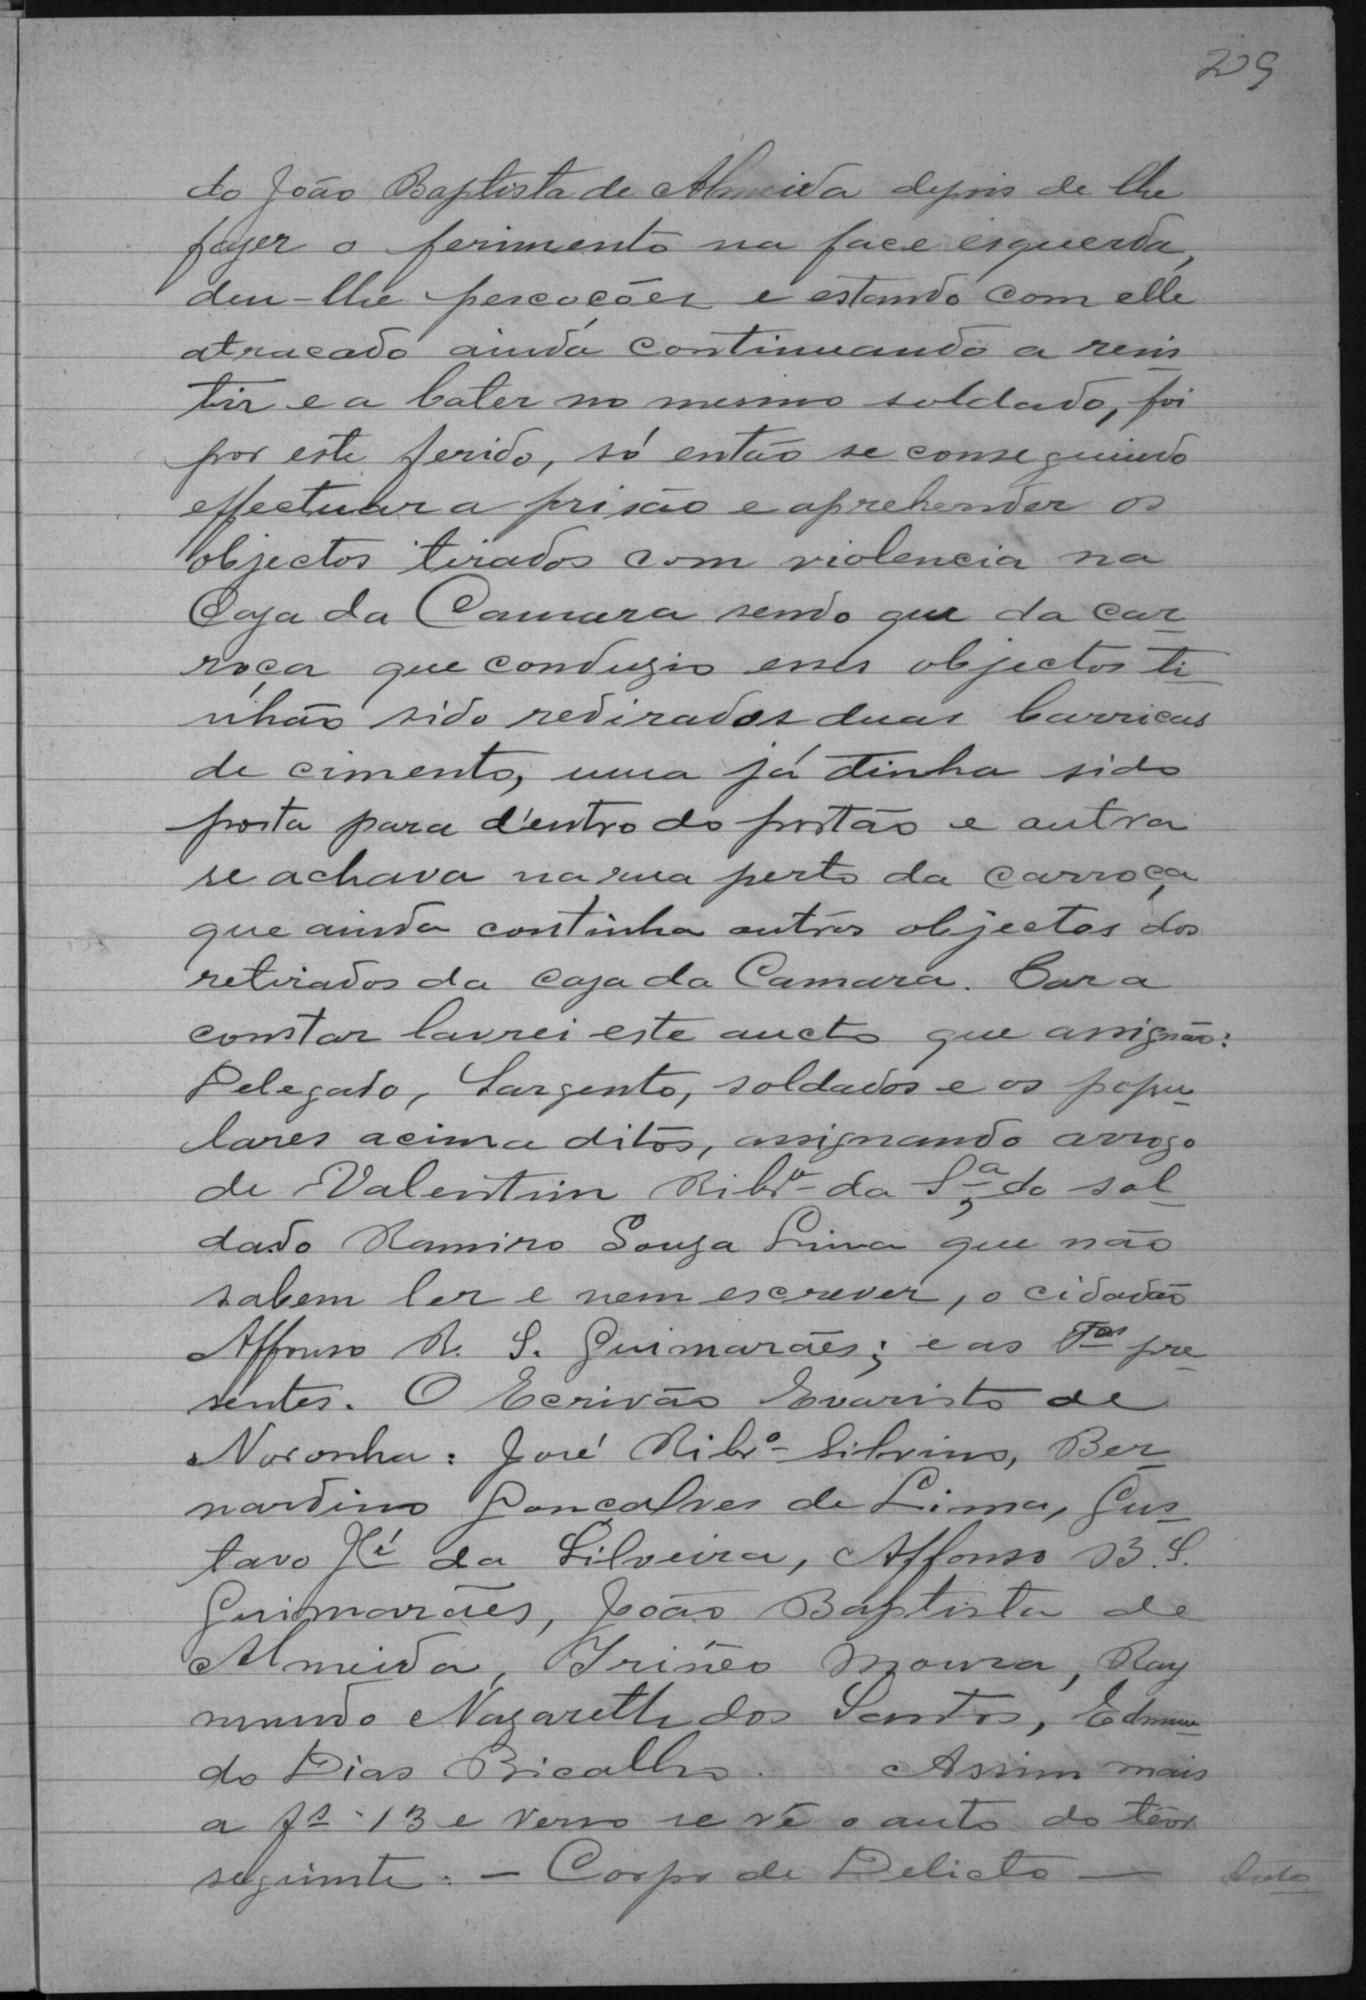 229
do João Baptista de Almeida depois de lhe
fazer o ferimento na face esquerda,
deu-lhe pescoções e estando com elle
atracado ainda continuando a resis
tir e a bater no mesmo soldado, foi
por este ferido, só então se conseguindo
effectuar a prisão e aprehender os
objectos tirados com violencia na
Caza da Camara sendo que da car-
roça que conduzio esses objectos ti-
nhão sido redirados duas barricas
de cimento, uma já tinha sido
posta para d'entro do portão e outra
se achava na rua perto da carroça
que ainda continha outros objectos dos
retirados da caza da Camara. Para
constar lavrei este aucto que assignão:
Delegado, Sargento, soldados e os popu-
lares acima ditos, assignando arrogo
de Valentim Ribrº da Sª, do sol-
dado Ramiro Souza Lima que não
sabem ler e nem escrever, o cidadão
Affonso R. S. Guimarães; e as Tas pre-
sentes. O Ecrivão Evaristo de
Noronha: José Ribrº Silvino, Ber-
nardino Gonçalves de Lima, Gus-
tavo Jé da Silveira, Affonso B. S.
Guimarães, João Baptista de
Almeida, Irinêo Moura, Ray
mundo Nazareth dos Santos, Edmun-
do Dias Bicalho. Assim mais
a fs 13 e verso se vê o auto do têor
seguinte: - Corpo de Delicto -